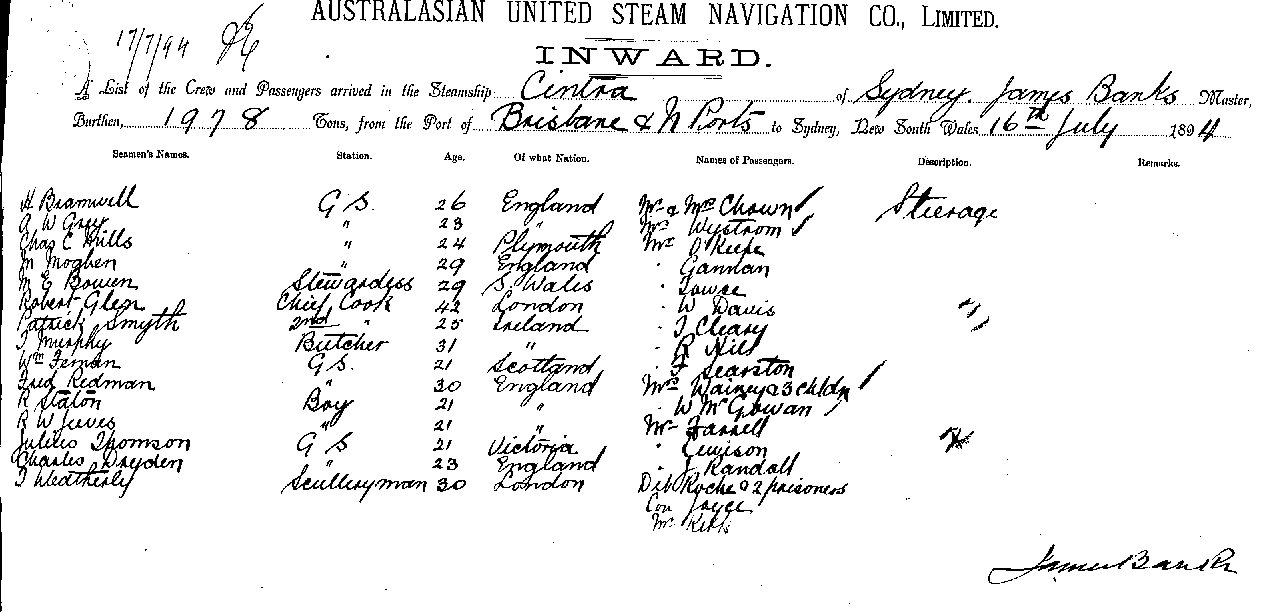 AUSTRALASIAN UNITED STEAM NAVIGATION CO., LIMITED.
17/7/94
INWARD.
A List of the Crew and Passengers arrived in the Steamship Cintra of Sydney. James Banks Master,
Burthen, 1978 Tons, from the Port of Brisbane & N Ports to Sydney, New South Wales 16th July 1894
Seamen's Names. Station. Age. Of what Nation. Names of Passengers. Description. Remarks.
H Bramwell G S. 26 England Mr & Mrs Chown Steerage
A W Gray " 23 " Mrs Wystrom
Chas C Hills " 24 Plymouth Mr O'Keefe
M Moghen " 29 England " Gannan
M E Bowen Stewardess 29 S. Wales "
Robert Glen Chief Cook 42 London " W Davis "
Patrick Smyth 2nd " 25 Ireland " J Cleary
T Murphy Butcher 31 " " R Hill
Wm Feman G S. 21 Scotland " F Searston
Fred Redman " 30 England Mrs Wainey & 3 chldn
R Staton Boy 21 " " W McGowan
R W Jeeves " 21 " Mr Farrell
Julius Thomson G S 21 Victoria " Lewison
Charles Dryden " 23 England " J Randall
T Weatherly Sculleryman 30 London Det Roche & 2 prisoners
Con Joyce
Mr
James Banks